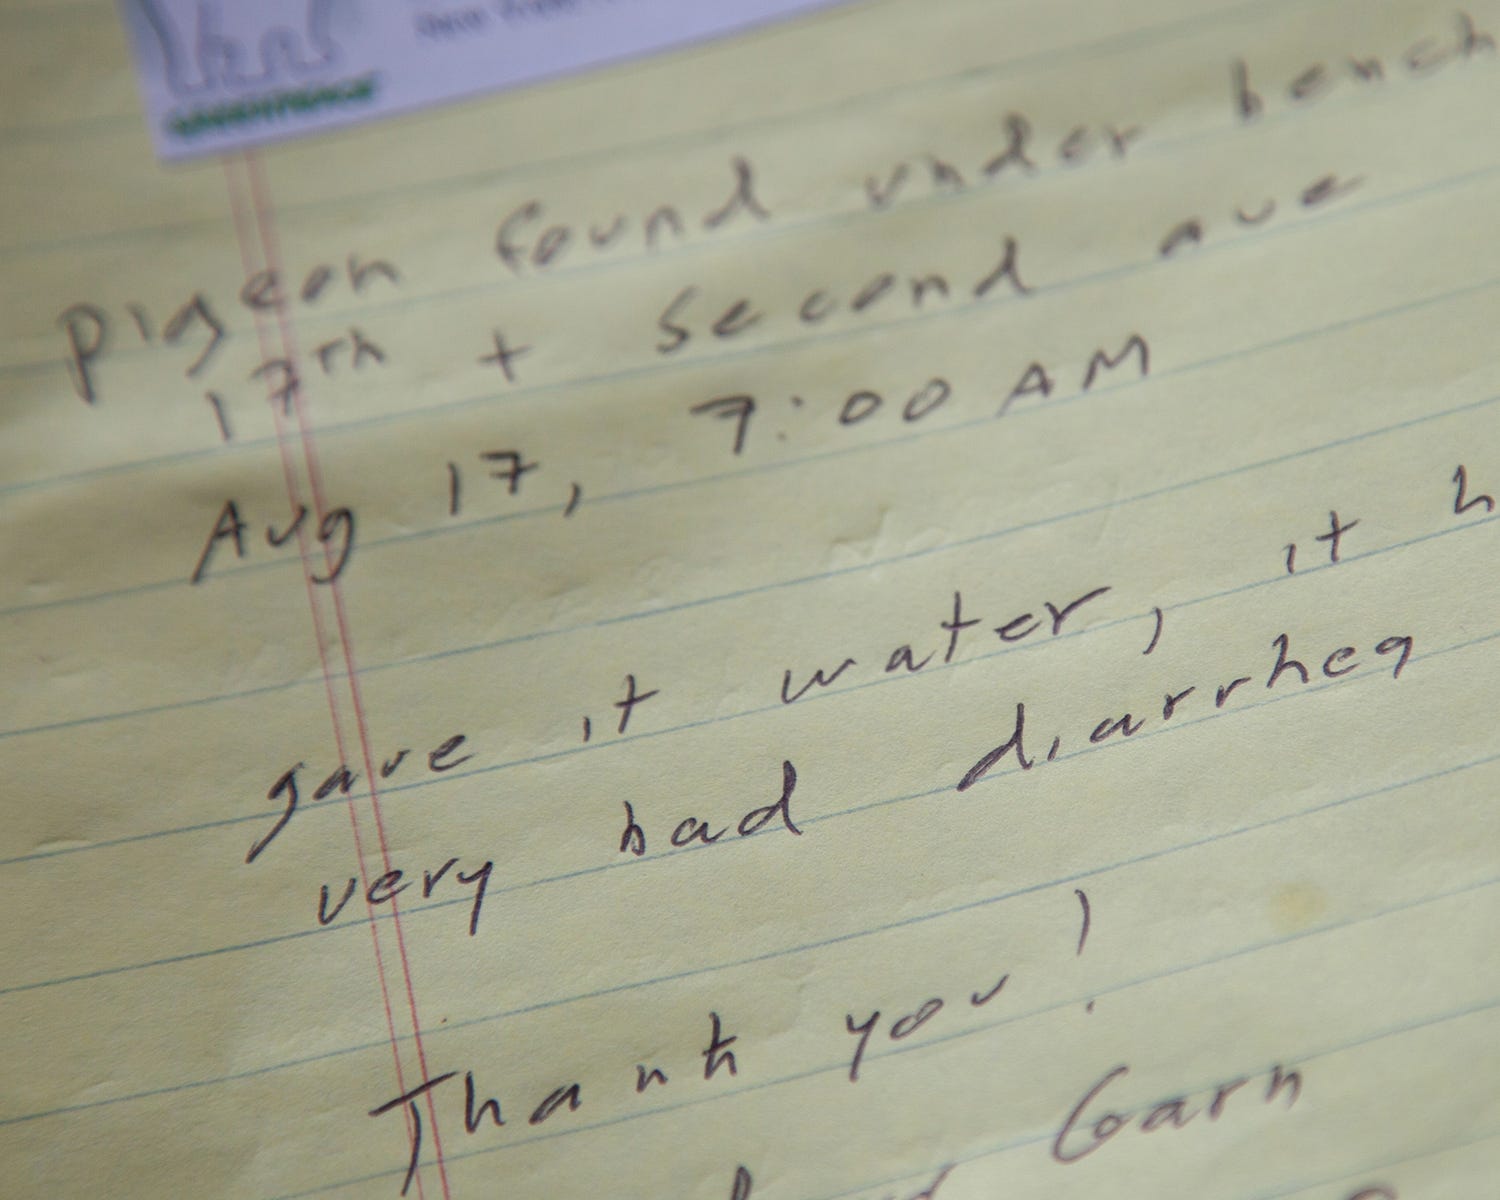 GREENPEACE
Pigeon found under bench
17th + second ave
Aug 17, 7:00 AM
gave it water, it h
very bad diarrhea
Thank you!
Garn